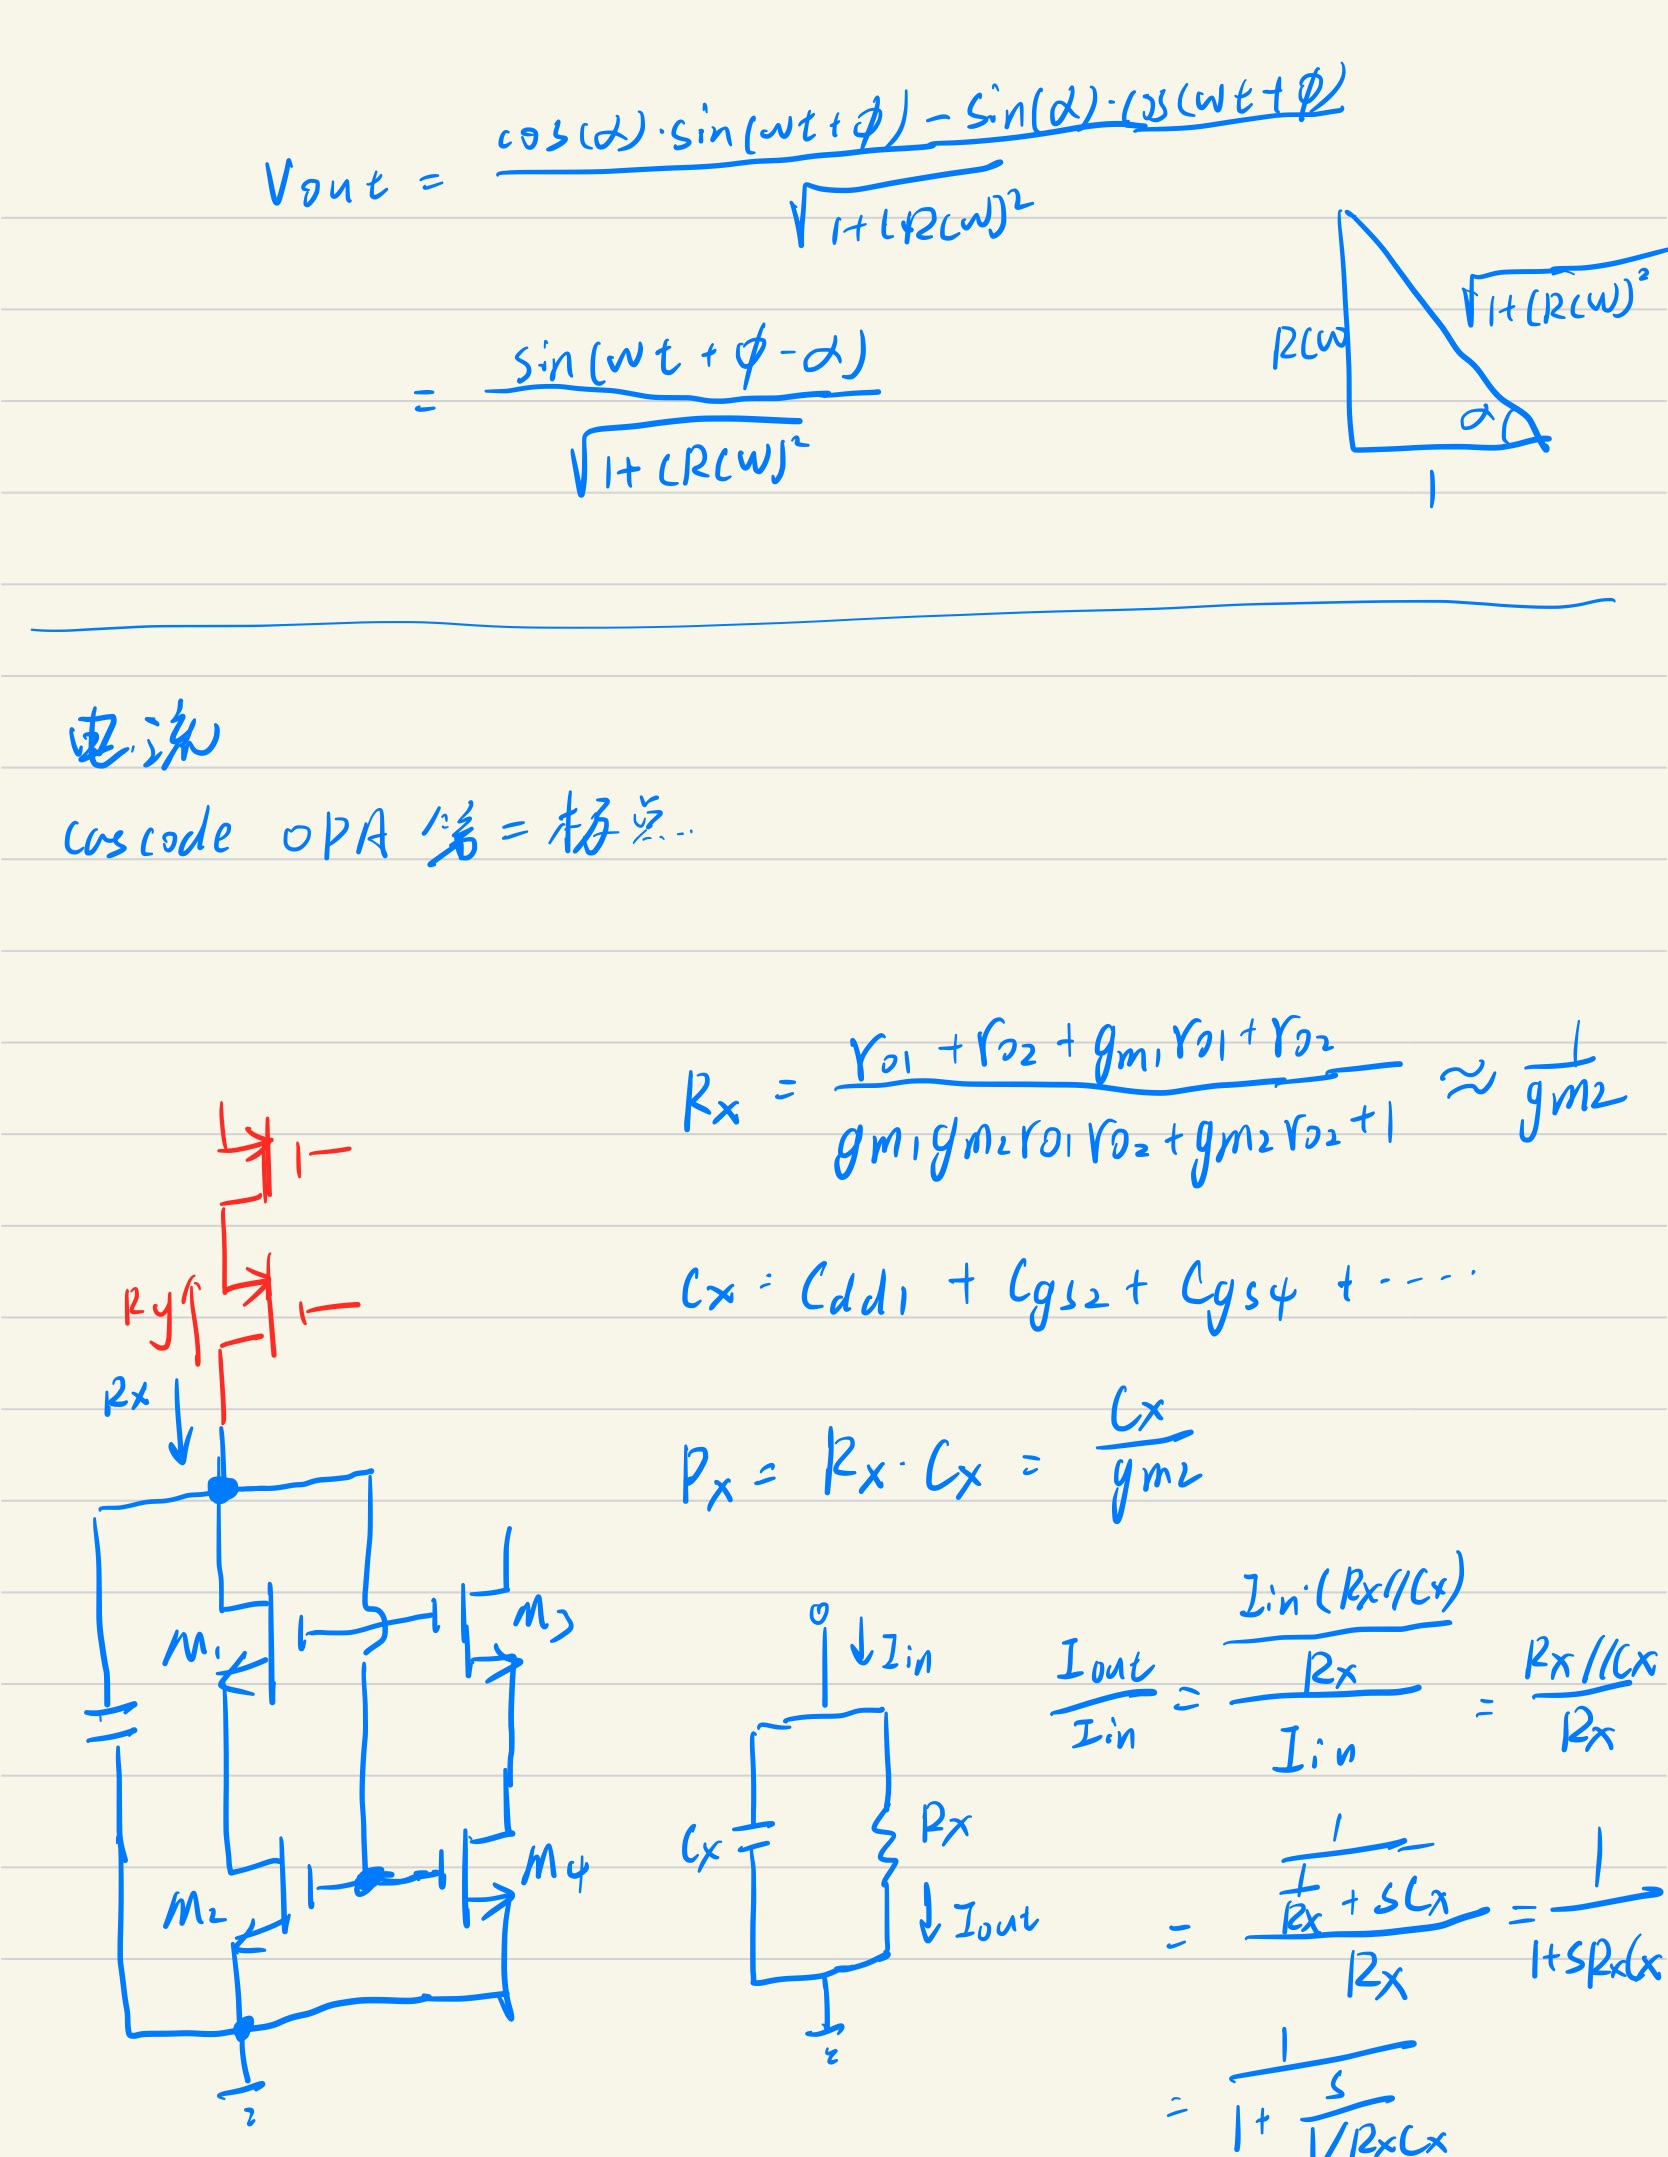 Vout = cos(α)·sin(wt+ϕ) - sin(α)·cos(wt+ϕ) / √1+(RCW)²
RCW
√1+(RCW)²
α
1
= sin(wt+ϕ-α) / √1+(RCW)²
电流
cascode OPA 第二极点...
Rx = ro1 + ro2 + gm1 ro1 + ro2 / gm1 gm2 ro1 ro2 + gm2 ro2 + 1 ≈ 1 / gm2
Cx = Cdd1 + Cgs2 + Cgs4 + ....
Ry
Rx
Px = Rx · Cx = Cx / gm2
M1
M3
M2
M4
Iin
Cx
Rx
Iout
Iout / Iin = Iin·(Rx//Cx) / Rx / Iin = Rx//Cx / Rx
= 1 / 1/Rx + SCx / Rx = 1 / 1+SRxCx
= 1 / 1 + S / 1/RxCx